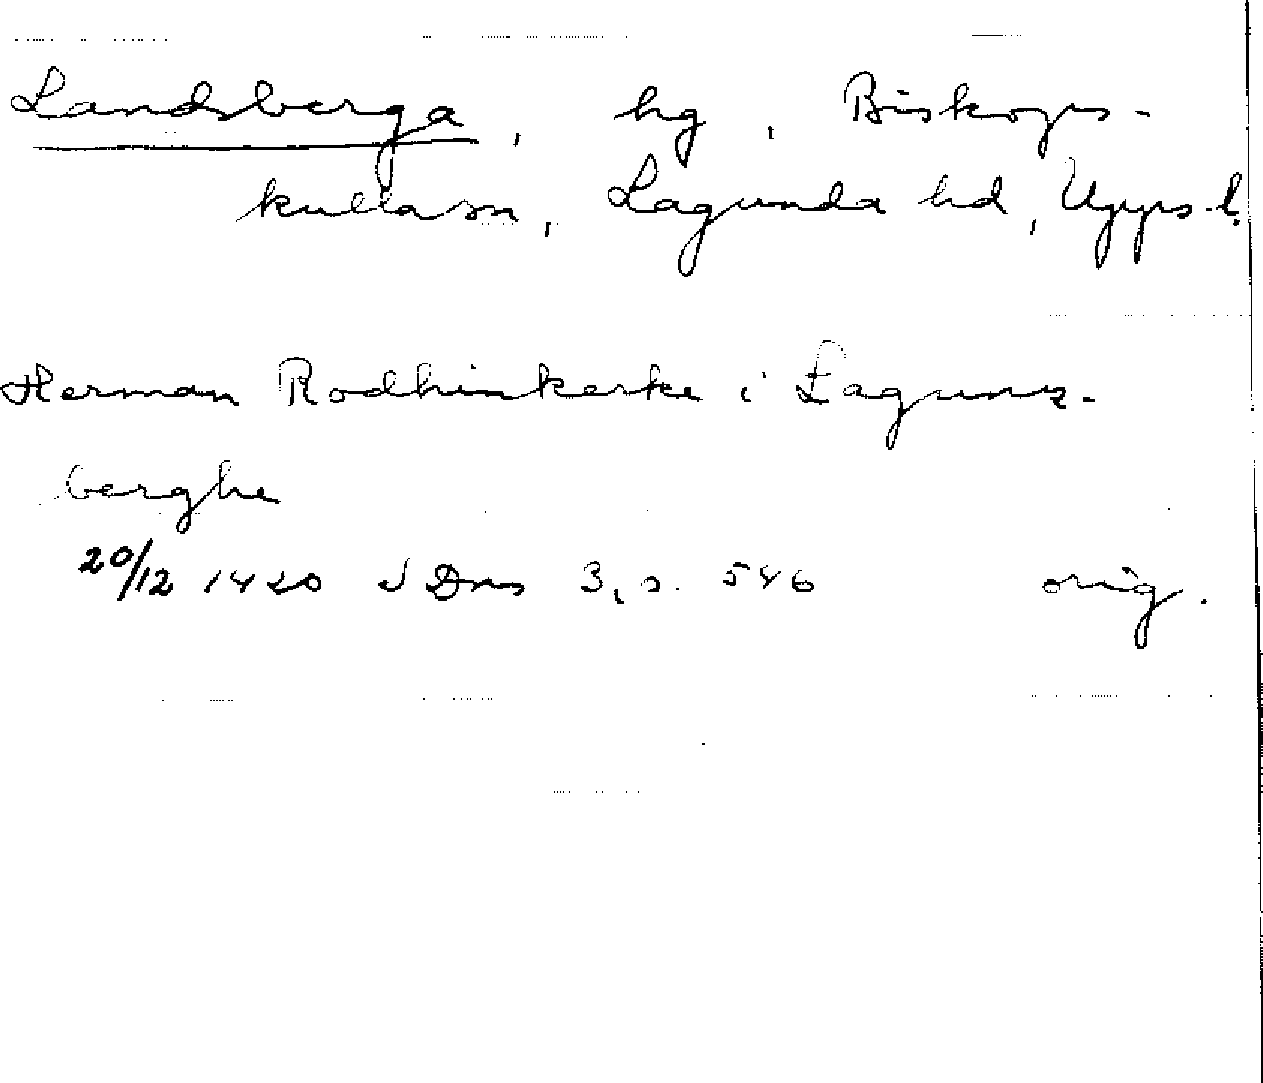 Landsberga, hg, Biskops-
kulla sn, Lagunda hd, Upps. l.
Herman Rodhinkerke i Laguns-
berghe
20/12 1420 SDns 3, s. 546 orig.